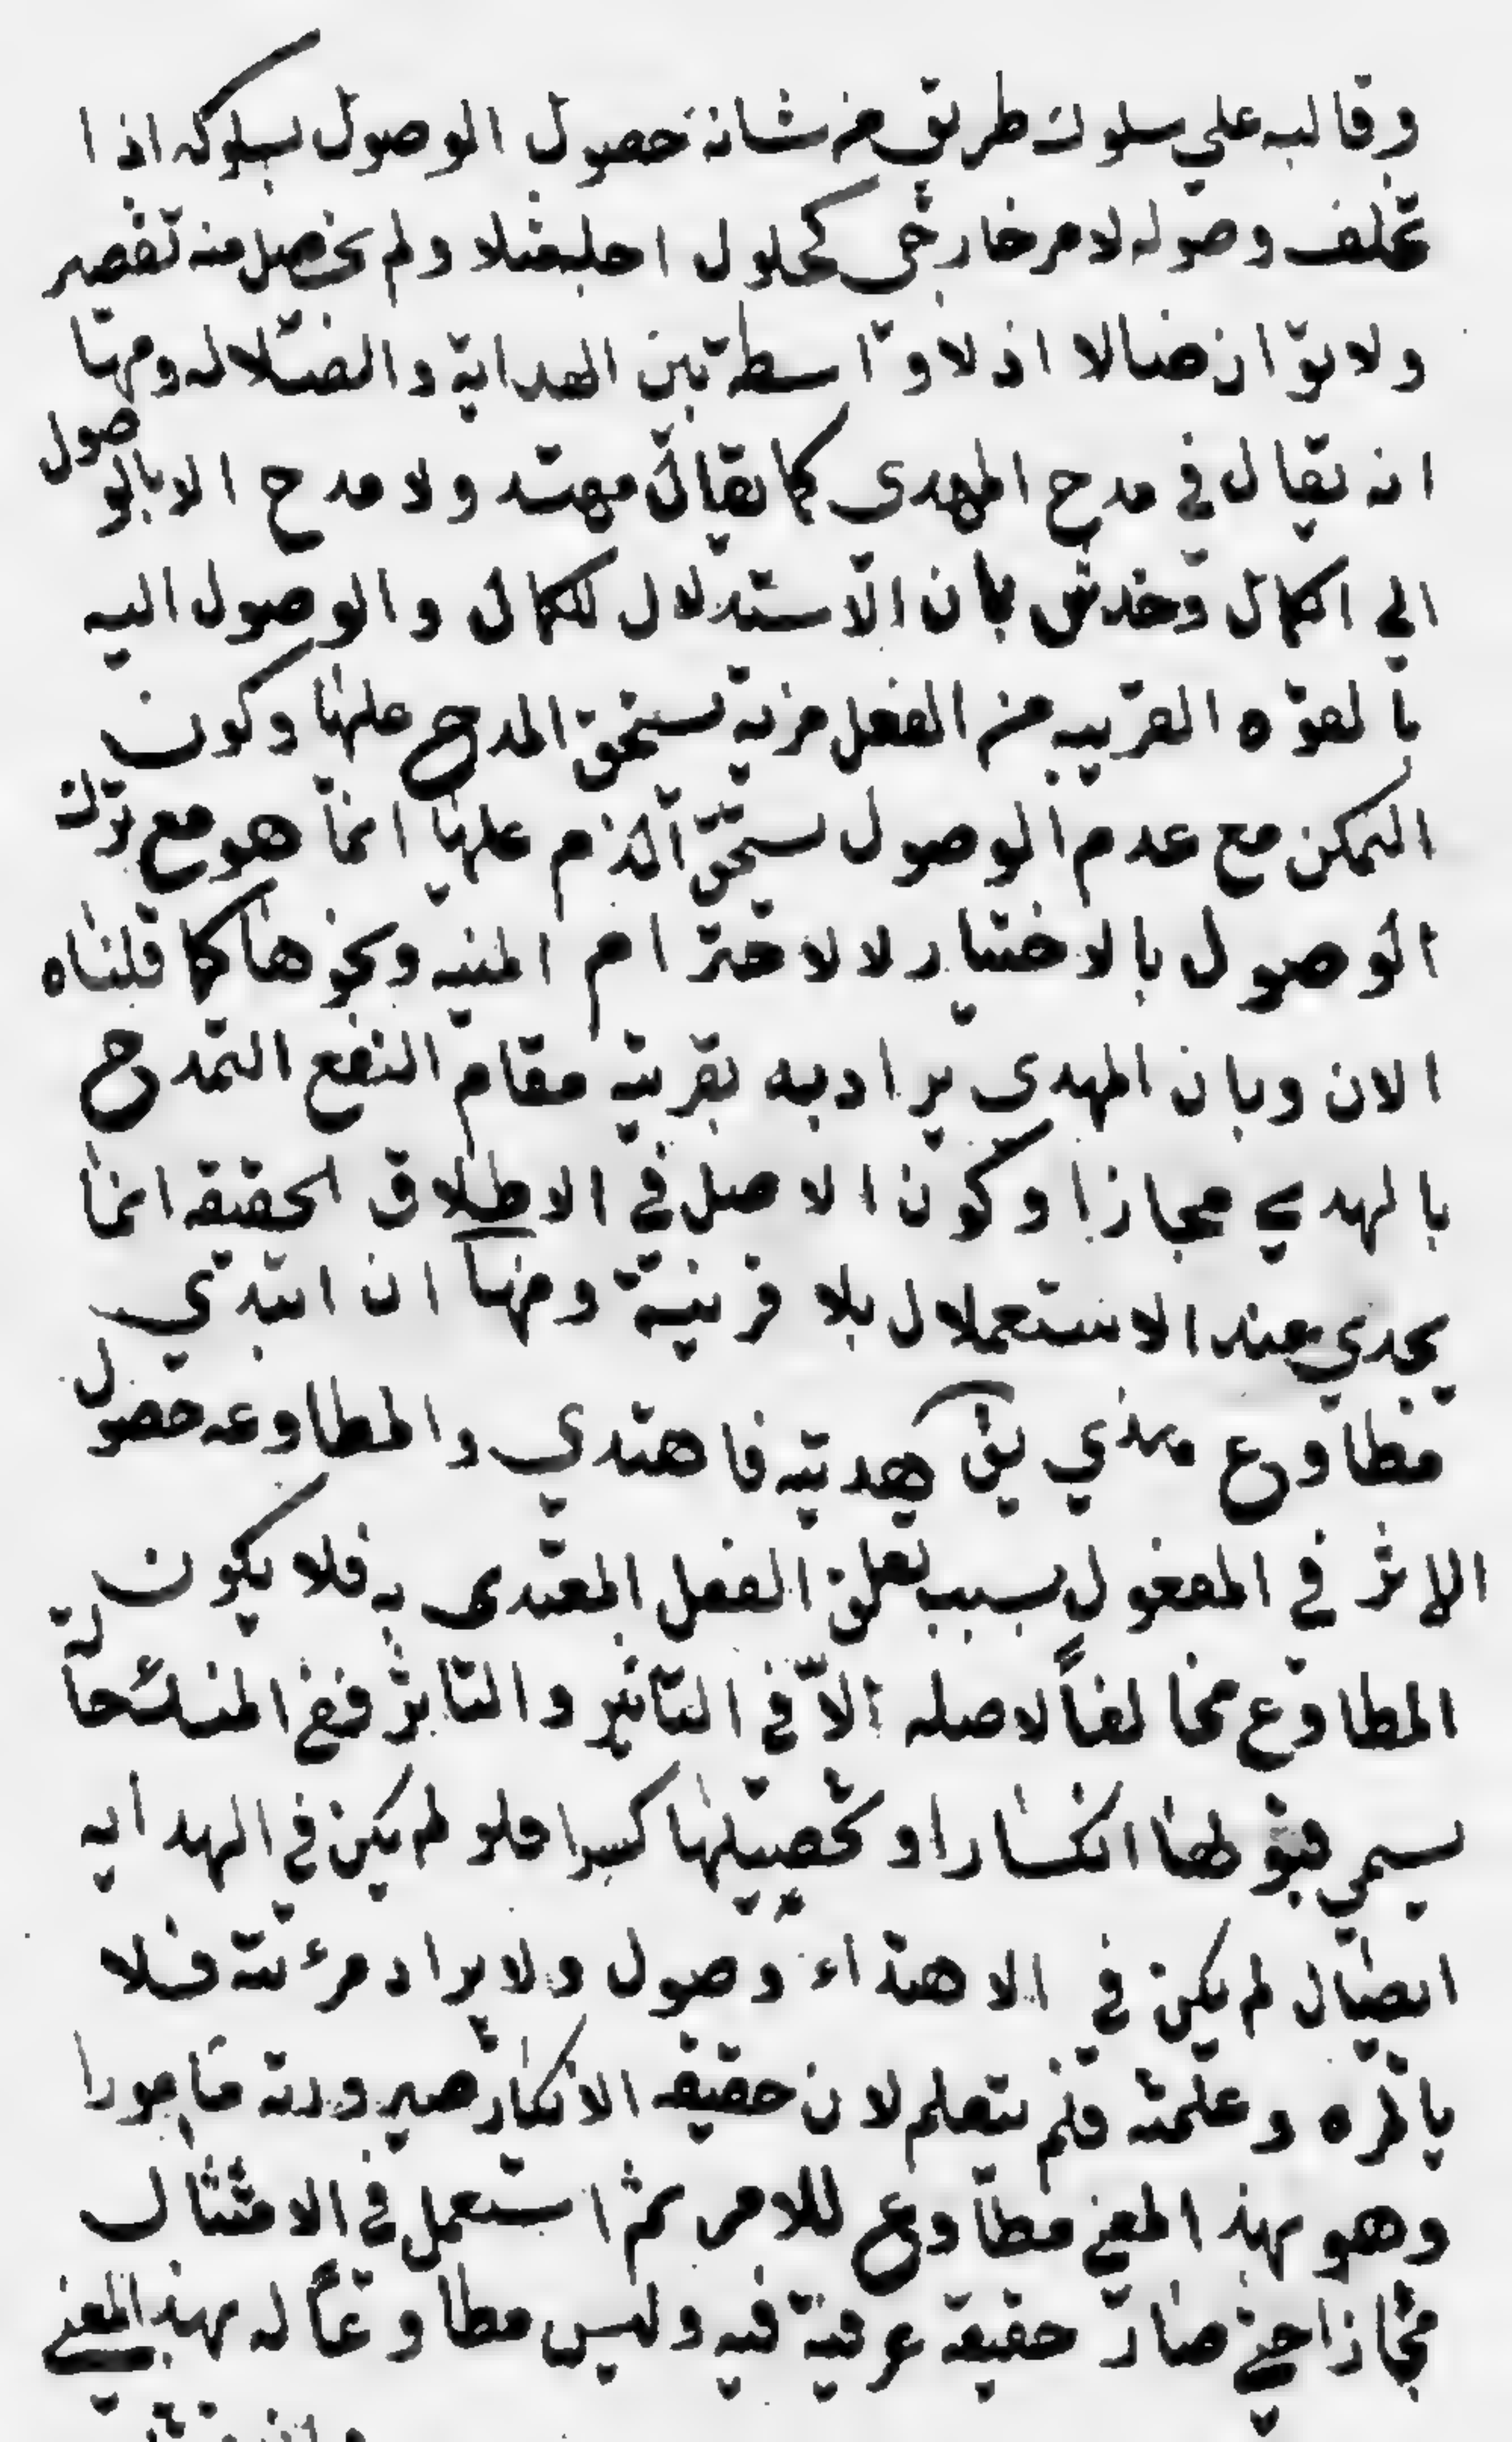 وقالبه علي سلوك طريق من شانه حصول الوصول بسلوكه اذا
تخلف وصوله لامر خارجي كحلول اجله مثلا ولم يحصل منه تقصير
ولا توان ضالا اذ لا واسطة بين الهداية والضلاله ومنها
انه يقال في مدح المهدي كما يقال مهتد ولا مدح الا بالوصول
الي الكمال وخدش بان الاستدلال للكمال والوصول اليه
بالقوه القريبه من الفعل مزية يستحق المدح عليها وكون
التمكن مع عدم الوصول يستحق الذم عليها انما هو مع ترك
الوصول بالاختيار لا لاخترام المنيه ونحوها كما قلناه
الان وبان المهدى يراد به بقرينه مقام النفع التمدح
بالهدي مجازا وكون الاصل في الاطلاق الحقيقه انما
يجدي عند الاستعملال بلا قرينة ومنها ان اهتدي
مطاوع هدي يق هديته فاهتدي والمطاوعه حصول
الاثر في المفعول بسبب تعلق الفعل المتعدى به فلا يكون
المطاوع مخالفاً لاصله الّا في التاثير والتاثر ففي المنكسر حالة
يسمي قبولها انكسارا وتحصيلها كسرا فلو لم يكن في الهدايه
ايصال لم يكن في الاهتداء وصول ولا يراد مرءته فلا
ياتمره وعلمته فلم يتعلم لان حقيقه الايتمار صيرورته مامورا
وهو بهذ المعني مطاوع للامر ثم استعمل في الامتثال
مجازا حتي صار حقيقة عرفية فيه وليس مطاوعاً له بهذ المعني